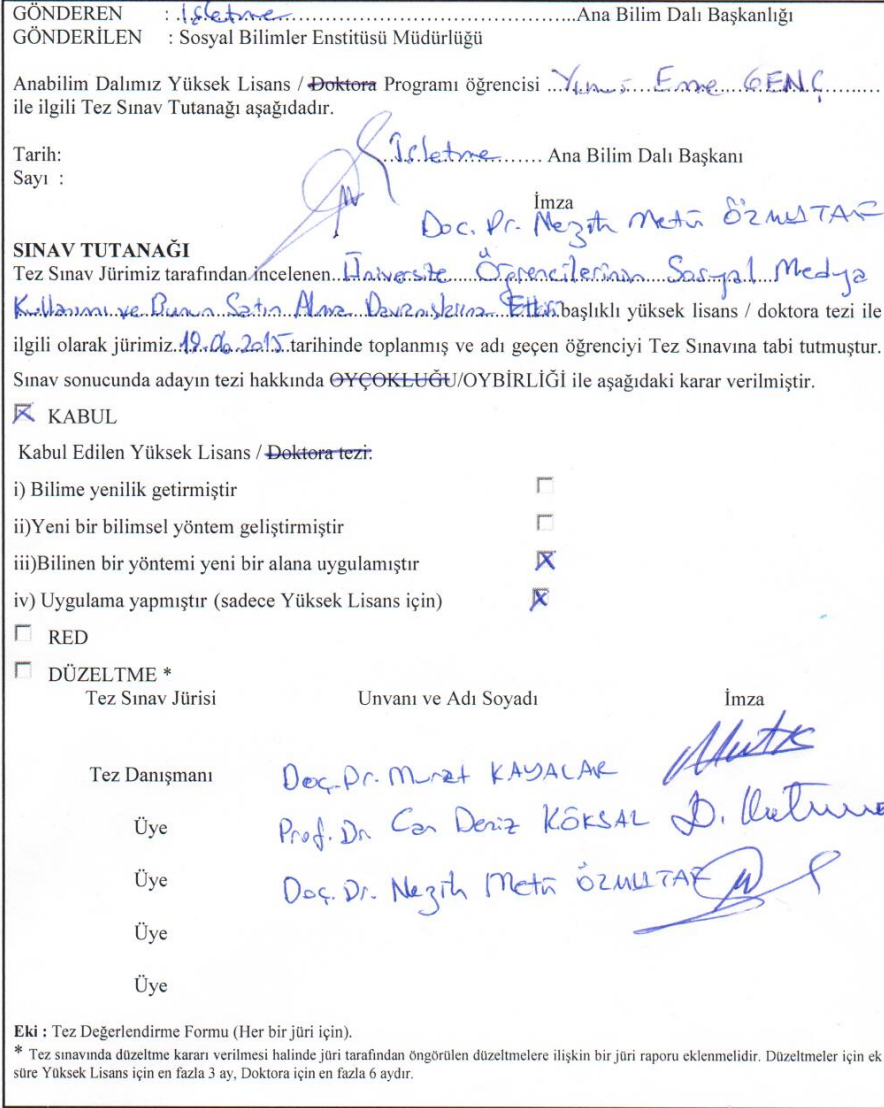 GÖNDEREN : .İşletme..............................................Ana Bilim Dalı Başkanlığı
GÖNDERİLEN : Sosyal Bilimler Enstitüsü Müdürlüğü
Anabilim Dalımız Yüksek Lisans / Doktora Programı öğrencisi ...Yunus Emre GENÇ...........
ile ilgili Tez Sınav Tutanağı aşağıdadır.
Tarih:
İşletme............. Ana Bilim Dalı Başkanı
Sayı :
İmza
Doç. Dr. Nezih Metin ÖZMUTAF
SINAV TUTANAĞI
Tez Sınav Jürimiz tarafından incelenen..Üniversite Öğrencilerinin Sosyal Medya
Kullanımı ve Bunun Satın Alma Davranışlarına Etkisi başlıklı yüksek lisans / doktora tezi ile
ilgili olarak jürimiz.19.06.2015.tarihinde toplanmış ve adı geçen öğrenciyi Tez Sınavına tabi tutmuştur.
Sınav sonucunda adayın tezi hakkında OYÇOKLUĞU/OYBİRLİĞİ ile aşağıdaki karar verilmiştir.
KABUL
Kabul Edilen Yüksek Lisans / Doktora tezi:
i) Bilime yenilik getirmiştir
ii)Yeni bir bilimsel yöntem geliştirmiştir
iii)Bilinen bir yöntemi yeni bir alana uygulamıştır
iv) Uygulama yapmıştır (sadece Yüksek Lisans için)
RED
DÜZELTME *
Tez Sınav Jürisi Unvanı ve Adı Soyadı İmza
Tez Danışmanı Doç. Dr. Murat KAYALAR
Üye Prof. Dr. Can Deniz KÖKSAL
Üye Doç. Dr. Nezih Metin ÖZMUTAF
Üye
Üye
Eki : Tez Değerlendirme Formu (Her bir jüri için).
* Tez sınavında düzeltme kararı verilmesi halinde jüri tarafından öngörülen düzeltmelere ilişkin bir jüri raporu eklenmelidir. Düzeltmeler için ek
süre Yüksek Lisans için en fazla 3 ay, Doktora için en fazla 6 aydır.